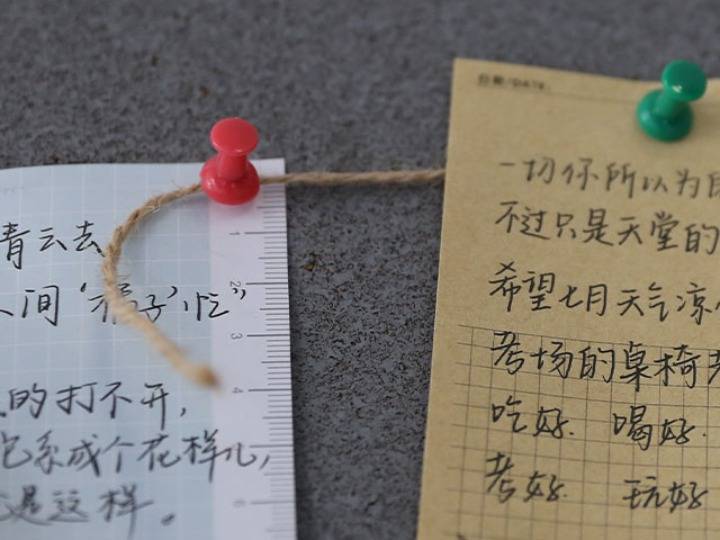 青云去
人间"橘子"忙"
的打不开,
包系成个花样儿,
还是这样。
1
2
3
4
6
日期/DATE:
一切你所以为
不过只是天堂的
希望七月天气凉
考场的桌椅
吃好. 喝好.
考好. 玩好